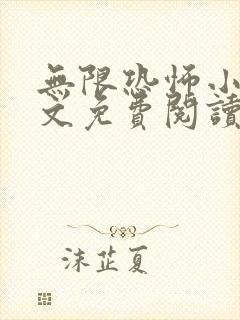 無限恐怖小
文免費閱讀
沫芷夏